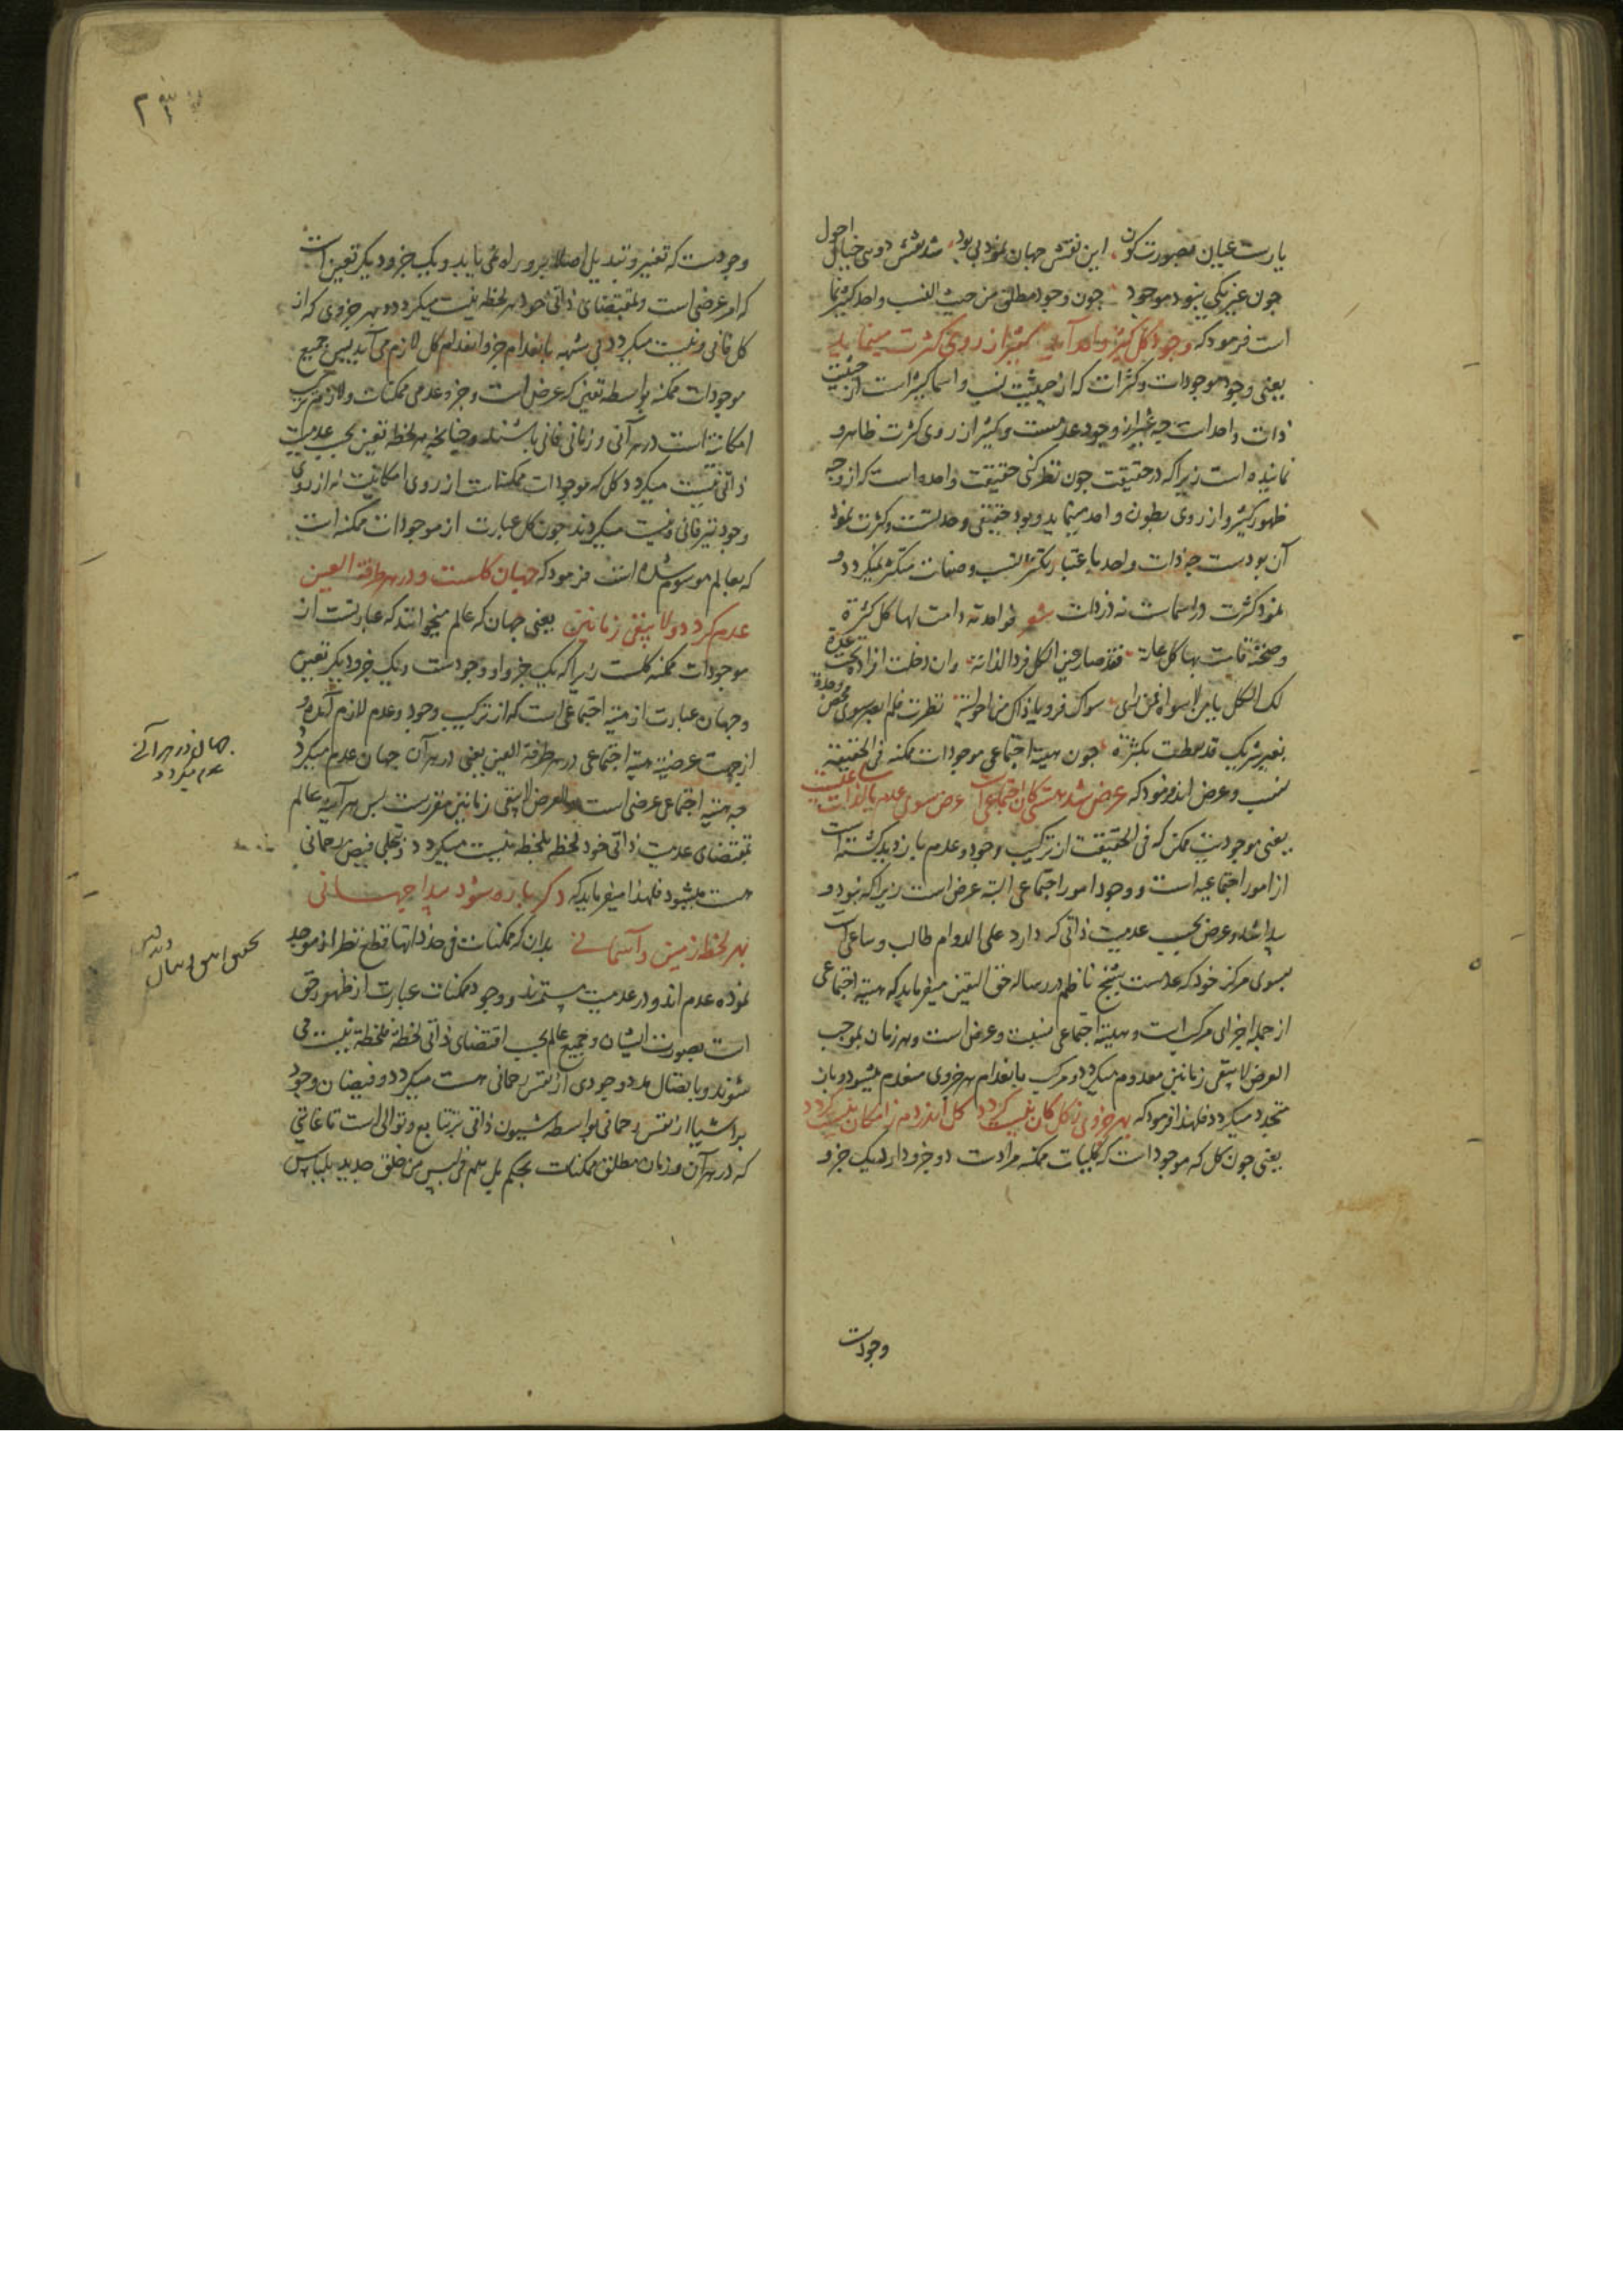 یارست عیان بصورت کون این نقش جهان نمود بی بود شد نقش دوی خیال احول
چون غیر یکی نبود موجود چون وجود مطلق من حیث النسب واحد کثیرنما
است فرمود که وجود کل کثیر واحد آید کثیر از روی کثرت مینماید
یعنی وجود موجودات وکثرات که از حیثیت نسب و اسما کثیر است از حیثیت
ذات واحد است چه غیر از وجود عدمست وکثیر از روی کثرت ظاهر و
نماینده است زیرا که در حقیقت چون نظر کنی حقیقت واحده است که از وجه
ظهور کثیر و از روی بطون واحد مینماید و بود حقیقی وحدتست و کثرت نمود
آن بودست چه ذات واحد باعتبار تکثر نسب و صفات متکثر نمیکردد و
نمود کثرت در اسماست نه در ذات شعر فواحدته دامت لها کل کثرة
وصحته قامت بها کل علة فقد صار عین الکل فرد الذاته وان دخلت افراده تحت عدة
لک الکل یا من لا سواه فمن رای سواک فرویا ذاک من احولیة نظرت فلم ابصر سوی محض وحدة
بغیر شریک قد تغطت بکثرة چون هیئت اجتماعی موجودات ممکنه فی الحقیقة
نسب و عرض اند فرمود که عرض شد هستی کان اجتماعی است عرض سوی عدم بالذات ساعیست
یعنی موجودیت ممکن که فی الحقیقت از ترکیب وجود و عدم بازدید کشته است
از امور اجتماعیه است و وجود امور اجتماعی البته عرض است زیرا که نبود و
پیدا شد و عرض بحسب عدمیت ذاتی که دارد علی الدوام طالب و ساعی است
بسوی مرکز خود که عدمست شیخ ناظم در رساله حق الیقین میفرماید که هیئة اجتماعی
از جمله اجزای مرکب است و هیئة اجتماعی نسبت و عرض است و هر زمان بموجب
العرض لا یبقی زمانین معدوم میکردد و مرکب بانعدام هر جزوی منعدم میشود و باز
متجدد میکردد فلهذا فرمود که بهر جزوی ز کل کان نیست کردد کل اندر دم ز امکان نیست کردد
یعنی چون کل که موجودات که کلیات ممکنه مرادست دو جزو دارد یک جزو
وجودست
وجودست که تغییر و تبدیل اصلا برو راه نمی یابد و یک جزو دیکر تعین است
که امر عرضی است و بمقتضای ذاتی خود هر لحظه نیست میکردد و بهر جزوی که از
کل فانی و نیست میکردد بی شبهه بانعدام جزو انعدام کل لازم می آید پس جمیع
موجودات ممکنه بواسطه تعین که عرض است و جزو عدمی ممکنات و لازم مرتبه
امکانیة است در هر آنی و زمانی فانی باشند و چنانچه هر لحظه تعین بحسب عدمیت
ذاتی نیست میکردد کل که موجودات ممکنات است از روی امکانیت نه از روی
وجود نیز فانی و نیست میکردند چون کل عبارت از موجودات ممکنه است
که بعالم موسوم شده است فرمود که جهان کلست و در هر طرفة العین
عدم کردد و لا یبقی زمانین یعنی جهان که عالم میخوانند که عبارتست از
موجودات ممکنه کلست زیرا که یک جزو او وجودست و یک جزو دیکر تعین
و جهان عبارت از هیئة اجتماعی است که از ترکیب وجود و عدم لازم آمده و
از جهت عرضیت هیئة اجتماعی در هر طرفة العین یعنی در هر آن جهان عدم میکردد
چه هیئة اجتماعی عرضی است والعرض لا یبقی زمانین مقررست پس هر آینه عالم
بمقتضای عدمیت ذاتی خود لحظه بلحظه نیست میکردد و بتجلی فیض رحمانی
هست میشود فلهذا میفرماید که دکر باره شود پیدا جهانی
بهر لحظه زمین و آسمانی بدان که ممکنات فی حد ذاتها قطع نظر از موجد
نموده عدم اند و در عدمیت مستمرند و وجود ممکنات عبارت از ظهور حق
است بصورت ایشان و جمیع عالم بحسب اقتضای ذاتی لحظة فلحظة نیست می
شوند و باتصال مدد وجودی از نفس رحمانی هست میکردد و فیضان وجود
بر اشیا از نفس رحمانی بواسطه شیون ذاتی بر تتابع و توالی است تا غایتی
که در هر آن و زمان مطلق ممکنات بحکم بل هم فی لبس من خلق جدید بلباس
جهان در هر آنی
عدم میکردد